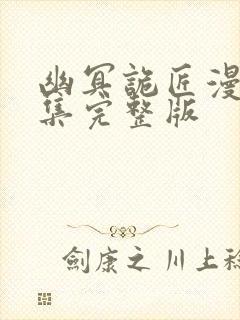 幽冥詭匠漫
集完整版
劍康之 川上稔